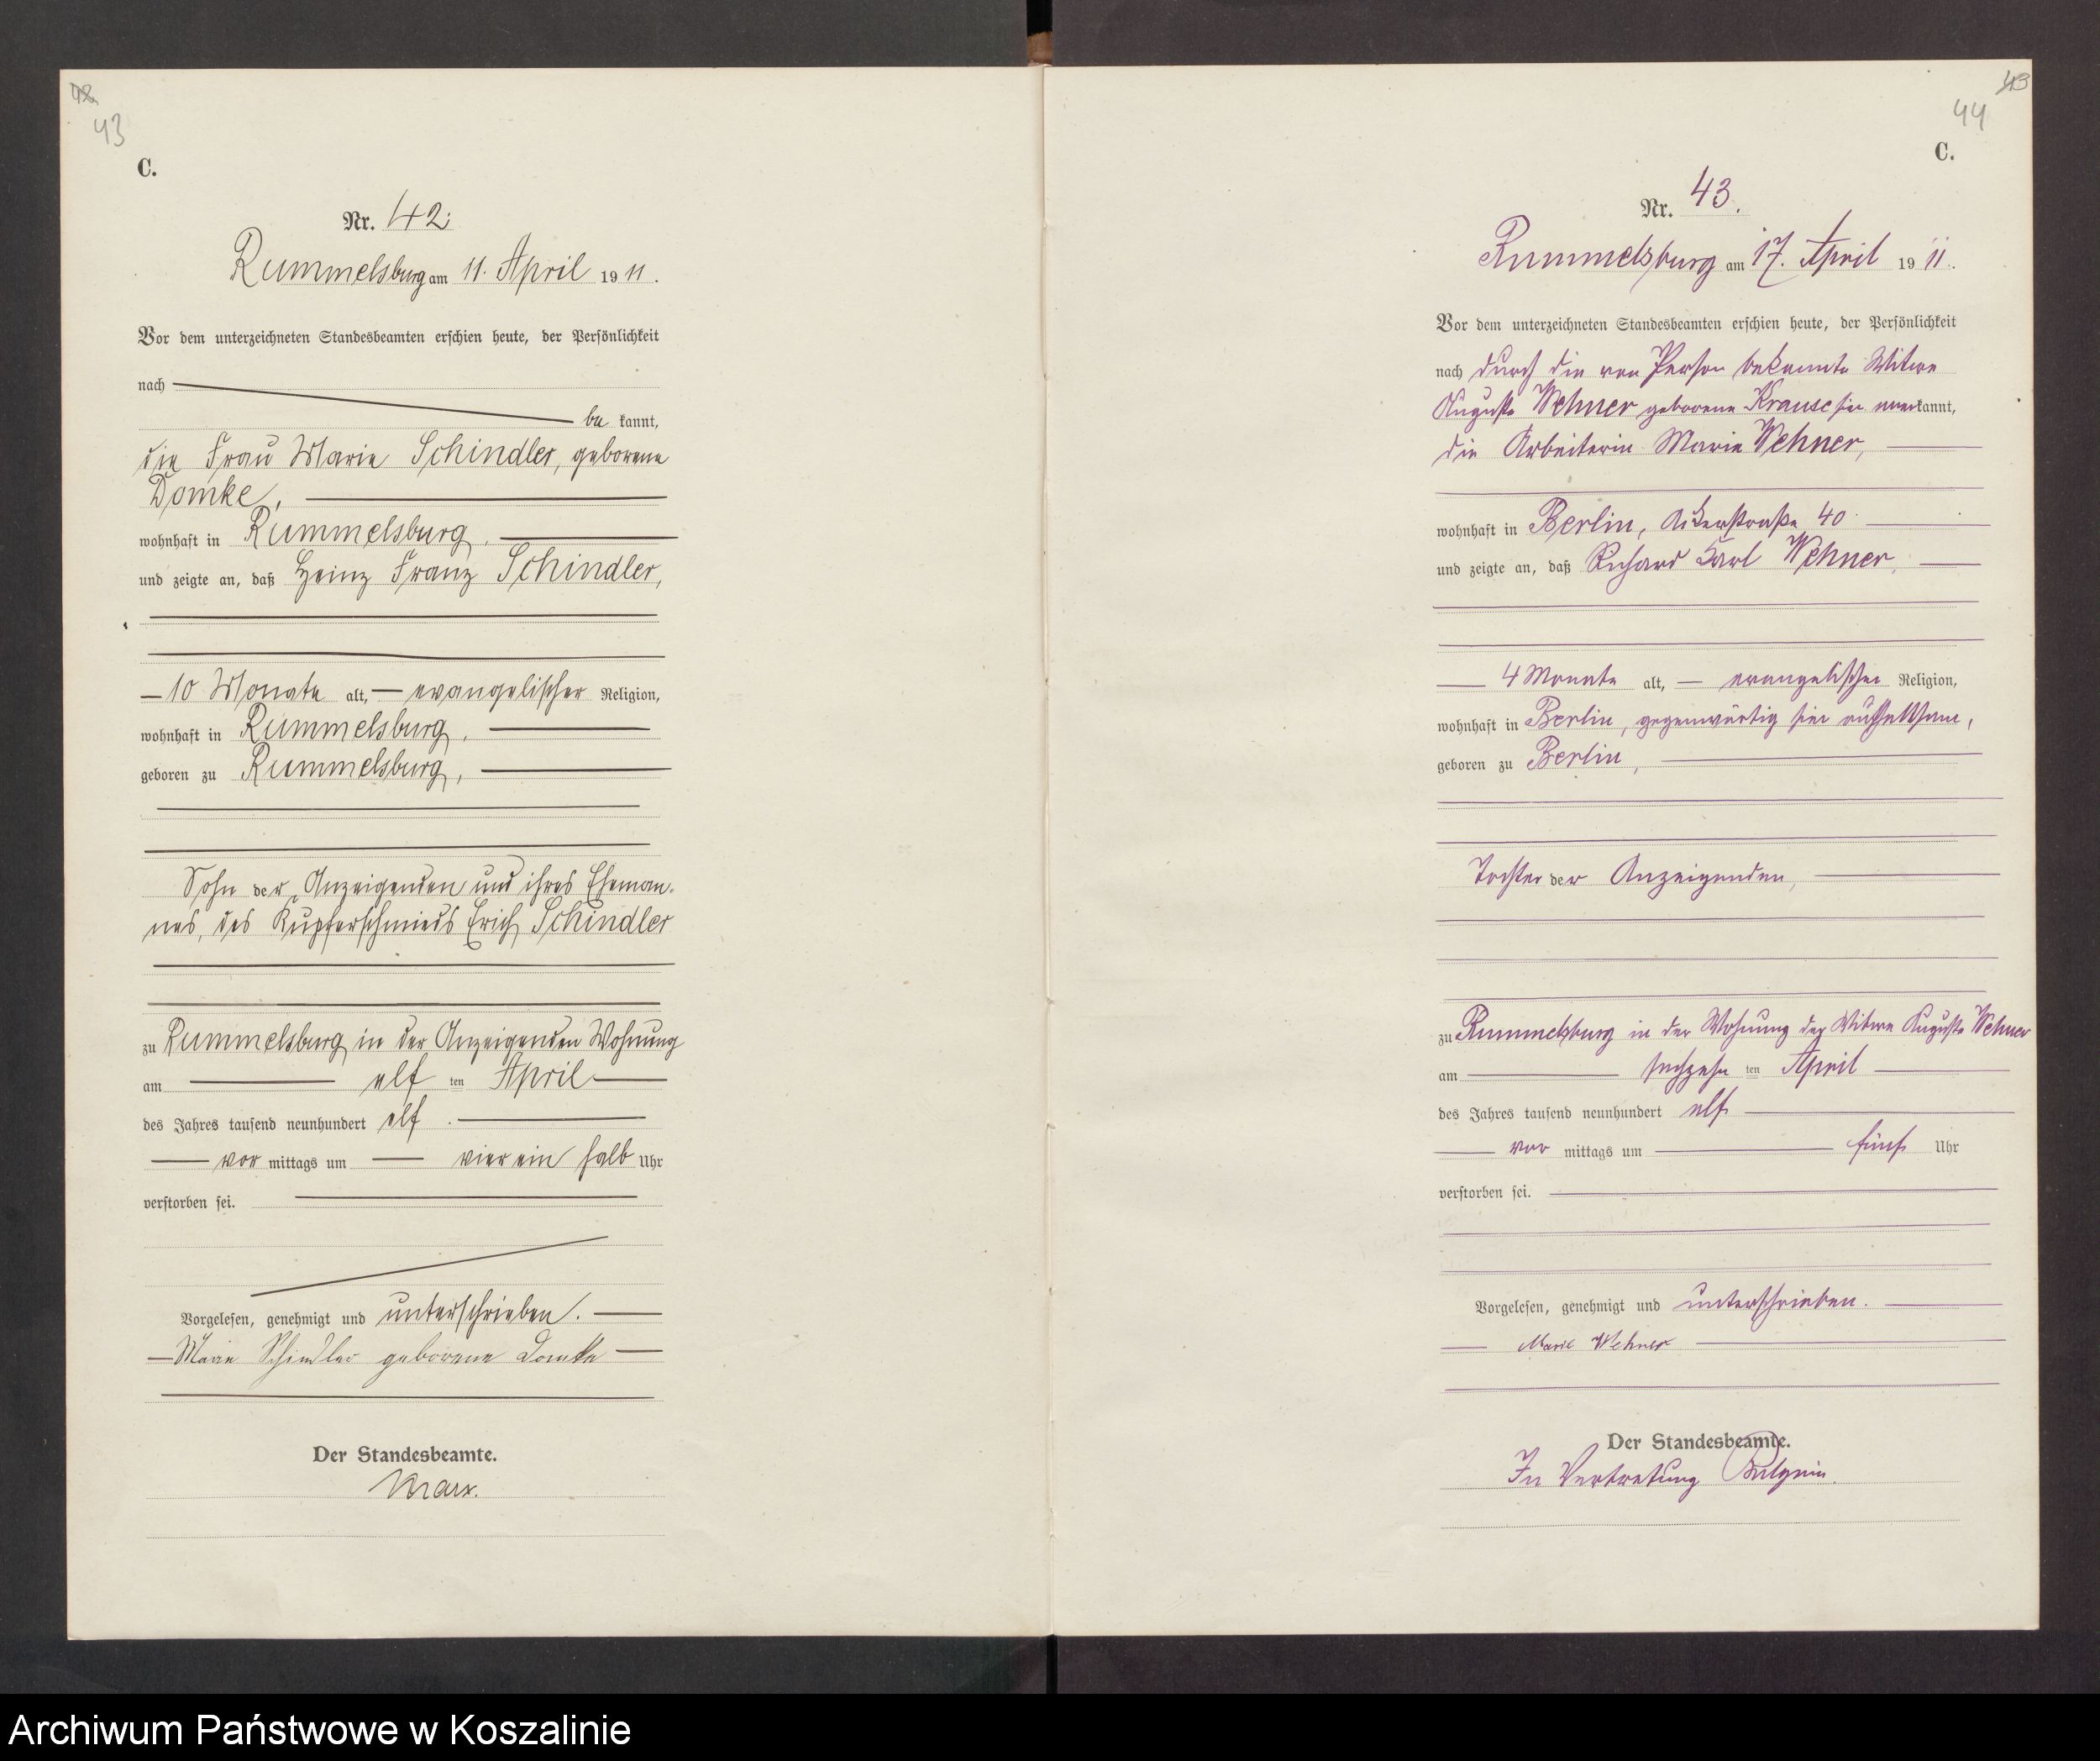 42
43
C.
Nr. 42.
Rummelsburg am 11. April 1911.
Vor dem unterzeichneten Standesbeamten erschien heute, der Persönlichkeit
nach
be kannt,
die Frau Marie Schindler, geborene
Domke,
wohnhaft in Rummelsburg,
und zeigte an, daß Heinz Franz Schindler,
10 Monate alt, evangelischer Religion,
wohnhaft in Rummelsburg,
geboren zu Rummelsburg,
Sohn der Anzeigenden und ihres Eheman-
nes, des Kupferschmieds Erich Schindler
zu Rummelsburg in der Anzeigenden Wohnung
am elf ten April
des Jahres tausend neunhundert elf
vor mittags um vier ein halb Uhr
verstorben sei.
Vorgelesen, genehmigt und unterschrieben.
Marie Schindler geborene Domke
Der Standesbeamte.
Marx.
43
44
C.
Nr. 43.
Rummelsburg am 17. April 1911.
Vor dem unterzeichneten Standesbeamten erschien heute, der Persönlichkeit
nach durch die von Person bekannte Witwe
Auguste Wehner geborene Krause hier anerkannt,
die Arbeiterin Marie Wehner,
wohnhaft in Berlin, Ackerstraße 40
und zeigte an, daß Richard Karl Wehner,
4 Monate alt, evangelischer Religion,
wohnhaft in Berlin, gegenwärtig hier aufhaltsam,
geboren zu Berlin,
Tochter der Anzeigenden,
zu Rummelsburg in der Wohnung der Witwe Auguste Wehner
am sechzehn ten April
des Jahres tausend neunhundert elf
vor mittags um fünf Uhr
verstorben sei.
Vorgelesen, genehmigt und unterschrieben.
Marie Wehner
Der Standesbeamte.
In Vertretung
Archiwum Państwowe w Koszalinie